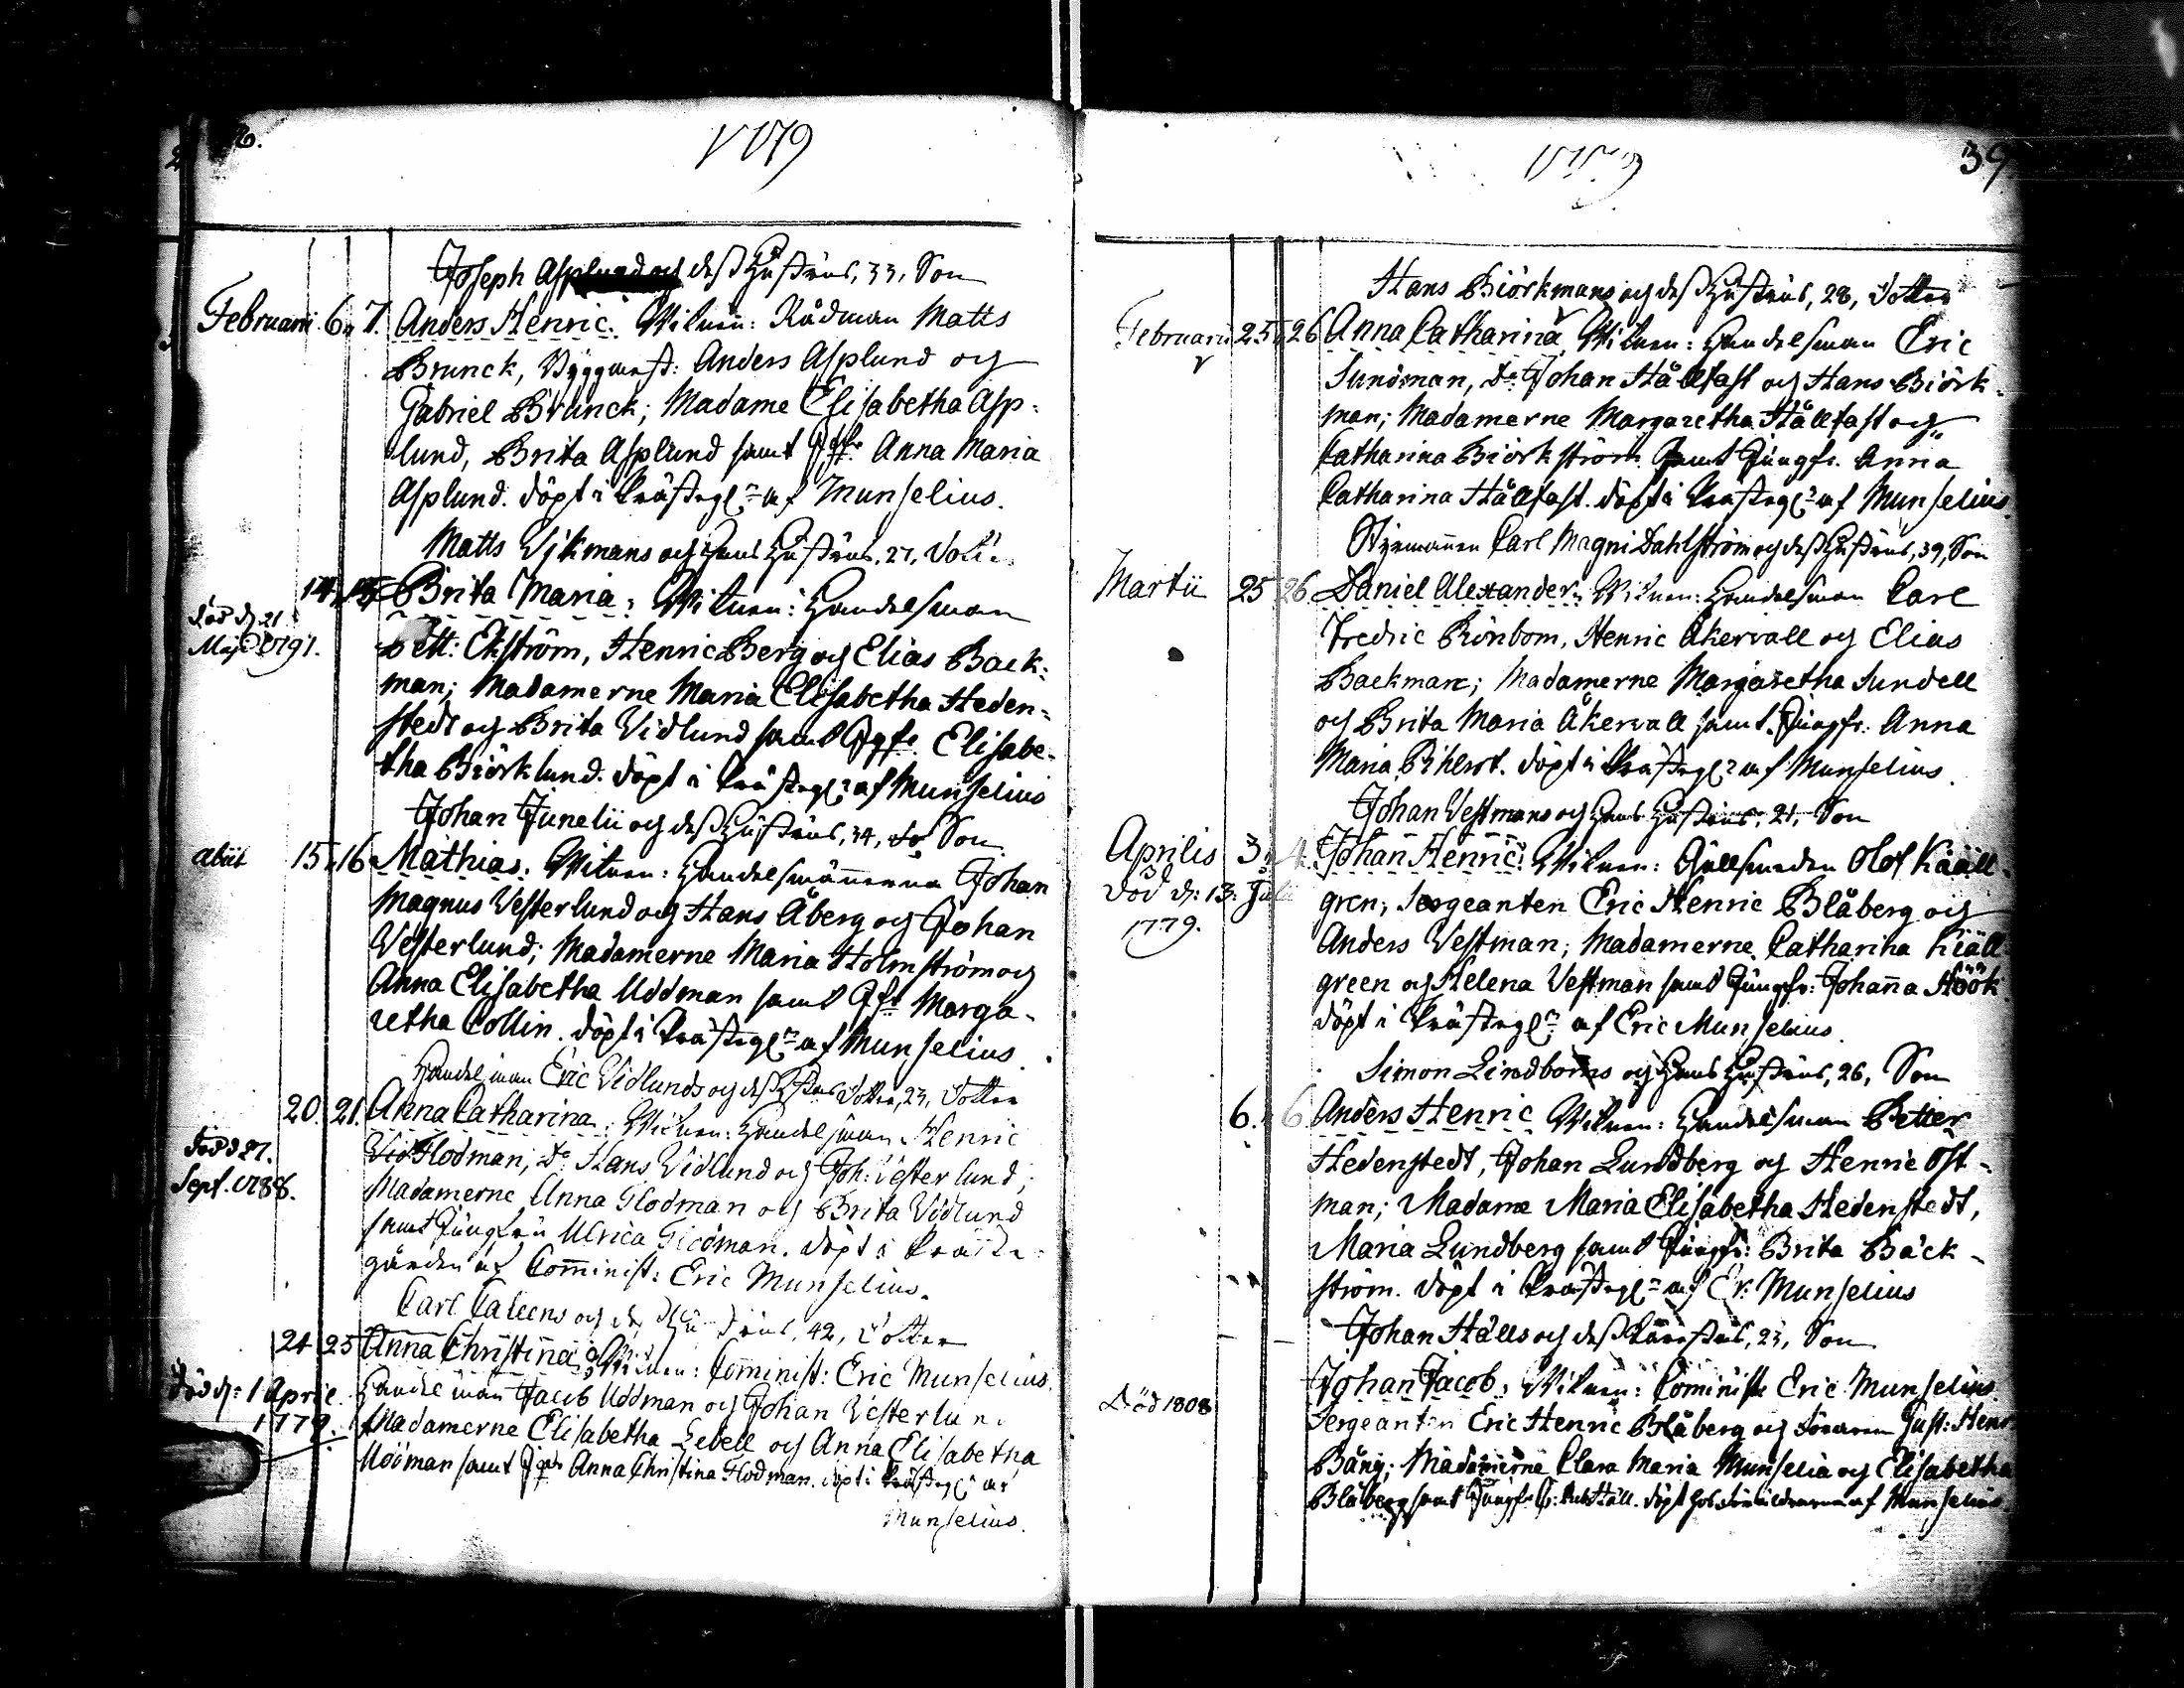 1779
Joseph Asplund och dess Hustrus, 33, Son
Februarii 6. 7. Anders Henric. Witnen: Rådman Matts
Brunck, Byggmest: Anders Asplund och
Gabriel Brunck; Madame Elisabetha Asp-
lund, Brita Asplund samt Jgfr. Anna Maria
Asplund. döpt i Prästeg:n af Munselius.
Matts Wikmans och Hans Hustrus, 27, Dotter
14. 15. Brita Maria: Witnen: Handelsman
Död d. 21
Maji 1791.
Pett: Ekström, Henric Berg och Elias Back-
man; Madamerne Maria Elisabetha Heden-
stedt och Brita Vidlund samt Jgfr. Elisabe-
tha Biörklund. döpt i Prästeg:n af Munselius
Johan Junelii och dess Hustrus, 34, Son
abiit 15. 16 Mathias: Witnen: Handelsmännerna Johan
Magnus Vesterlund och Hans Åberg och Johan
Vesterlund; Madamerne Maria Holmström och
Anna Elisabetha Uddman samt Jfr Marga-
retha Collin. döpt i Prästeg:n af Munselius.
Handelsman Eric Vidlunds och dess Hustrus, 23, Dotter
20. 21. Anna Catharina: Witnen: Handelsman Henric
Död d 27.
Sept. 1788.
Flodman, D:o Hans Vidlund och Joh: Vesterlund;
Madamerne Anna Flodman och Brita Vidlund
samt Jungfru Ulrica Flodman. döpt i Präste-
gården af Comminist: Eric Munselius.
Carl Caleens och dess Hustrus, 42, Dotter
24 25 Anna Christina: Witnen: Comminist: Eric Munselius.
Död d: 1 April
1779.
Handelsman Jacob Uddman och Johan Vesterlund
Madamerne Elisabetha Lebell och Anna Elisabetha
Uddman samt Jgfr Anna Christina Flodman. döpt i Prästeg:n af
Munselius.
1779
39
Hans Biörkmans och dess Hustrus, 28, Dotter
Februarii 25. 26 Anna Catharina Witnen: Handelsman Eric
Sundman, D:o Johan Stållfast och Hans Biörk-
man; Madamerne Margaretha Stållfast och
Catharina Biörkström samt Jungfr. Anna
Catharina Stållfast. döpt i Prästeg:n af Munselius.
Styrmannen Carl Magni Dahlström och dess Hustrus, 39, Son
Martii 25 26. Daniel Alexander: Witnen: Handelsman Carl
Fredric Rönbom, Henric Åkervall och Elias
Backman; Madamerne Margaretha Sundell
och Brita Maria Åkervall samt Jungfr: Anna
Maria. döpt i Prästeg:n af Munselius.
Johan Vestmans och Hans Hustrus, 21, Son
Aprilis 3. 4. Johan Henric: Witnen: Gullsmeden Olof Kiäll-
Död d: 13: Julii
1779.
gren; Sergeanten Eric Henric Blåberg och
Anders Vestman; Madamerne Catharina Kiäll-
green och Helena Vestman samt Jungfr: Johanna Höök
döpt i Prästeg:n af Eric Munselius.
Simon Lindboms och Hans Hustrus, 26, Son
6. 6 Anders Henric Witnen: Handelsman Petter
Hedenstedt, Johan Lundberg och Henric Öst-
man; Madame Maria Elisabetha Hedenstedt,
Maria Lundberg samt Jungfr: Brita Bäck-
ström. döpt i Prästeg:n af Er: Munselius
Johan Ståls och dess Hustrus, 23, Son
Johan Jacob: Witnen: Cominist Eric Munselius
Död 1808
Sergeanten Eric Henric Blåberg och Gust: Henr
Bång; Madamerne Clara Maria Munselia och Elisabetha
Blåberg samt Jungfr Ståll. döpt hos af Munselius